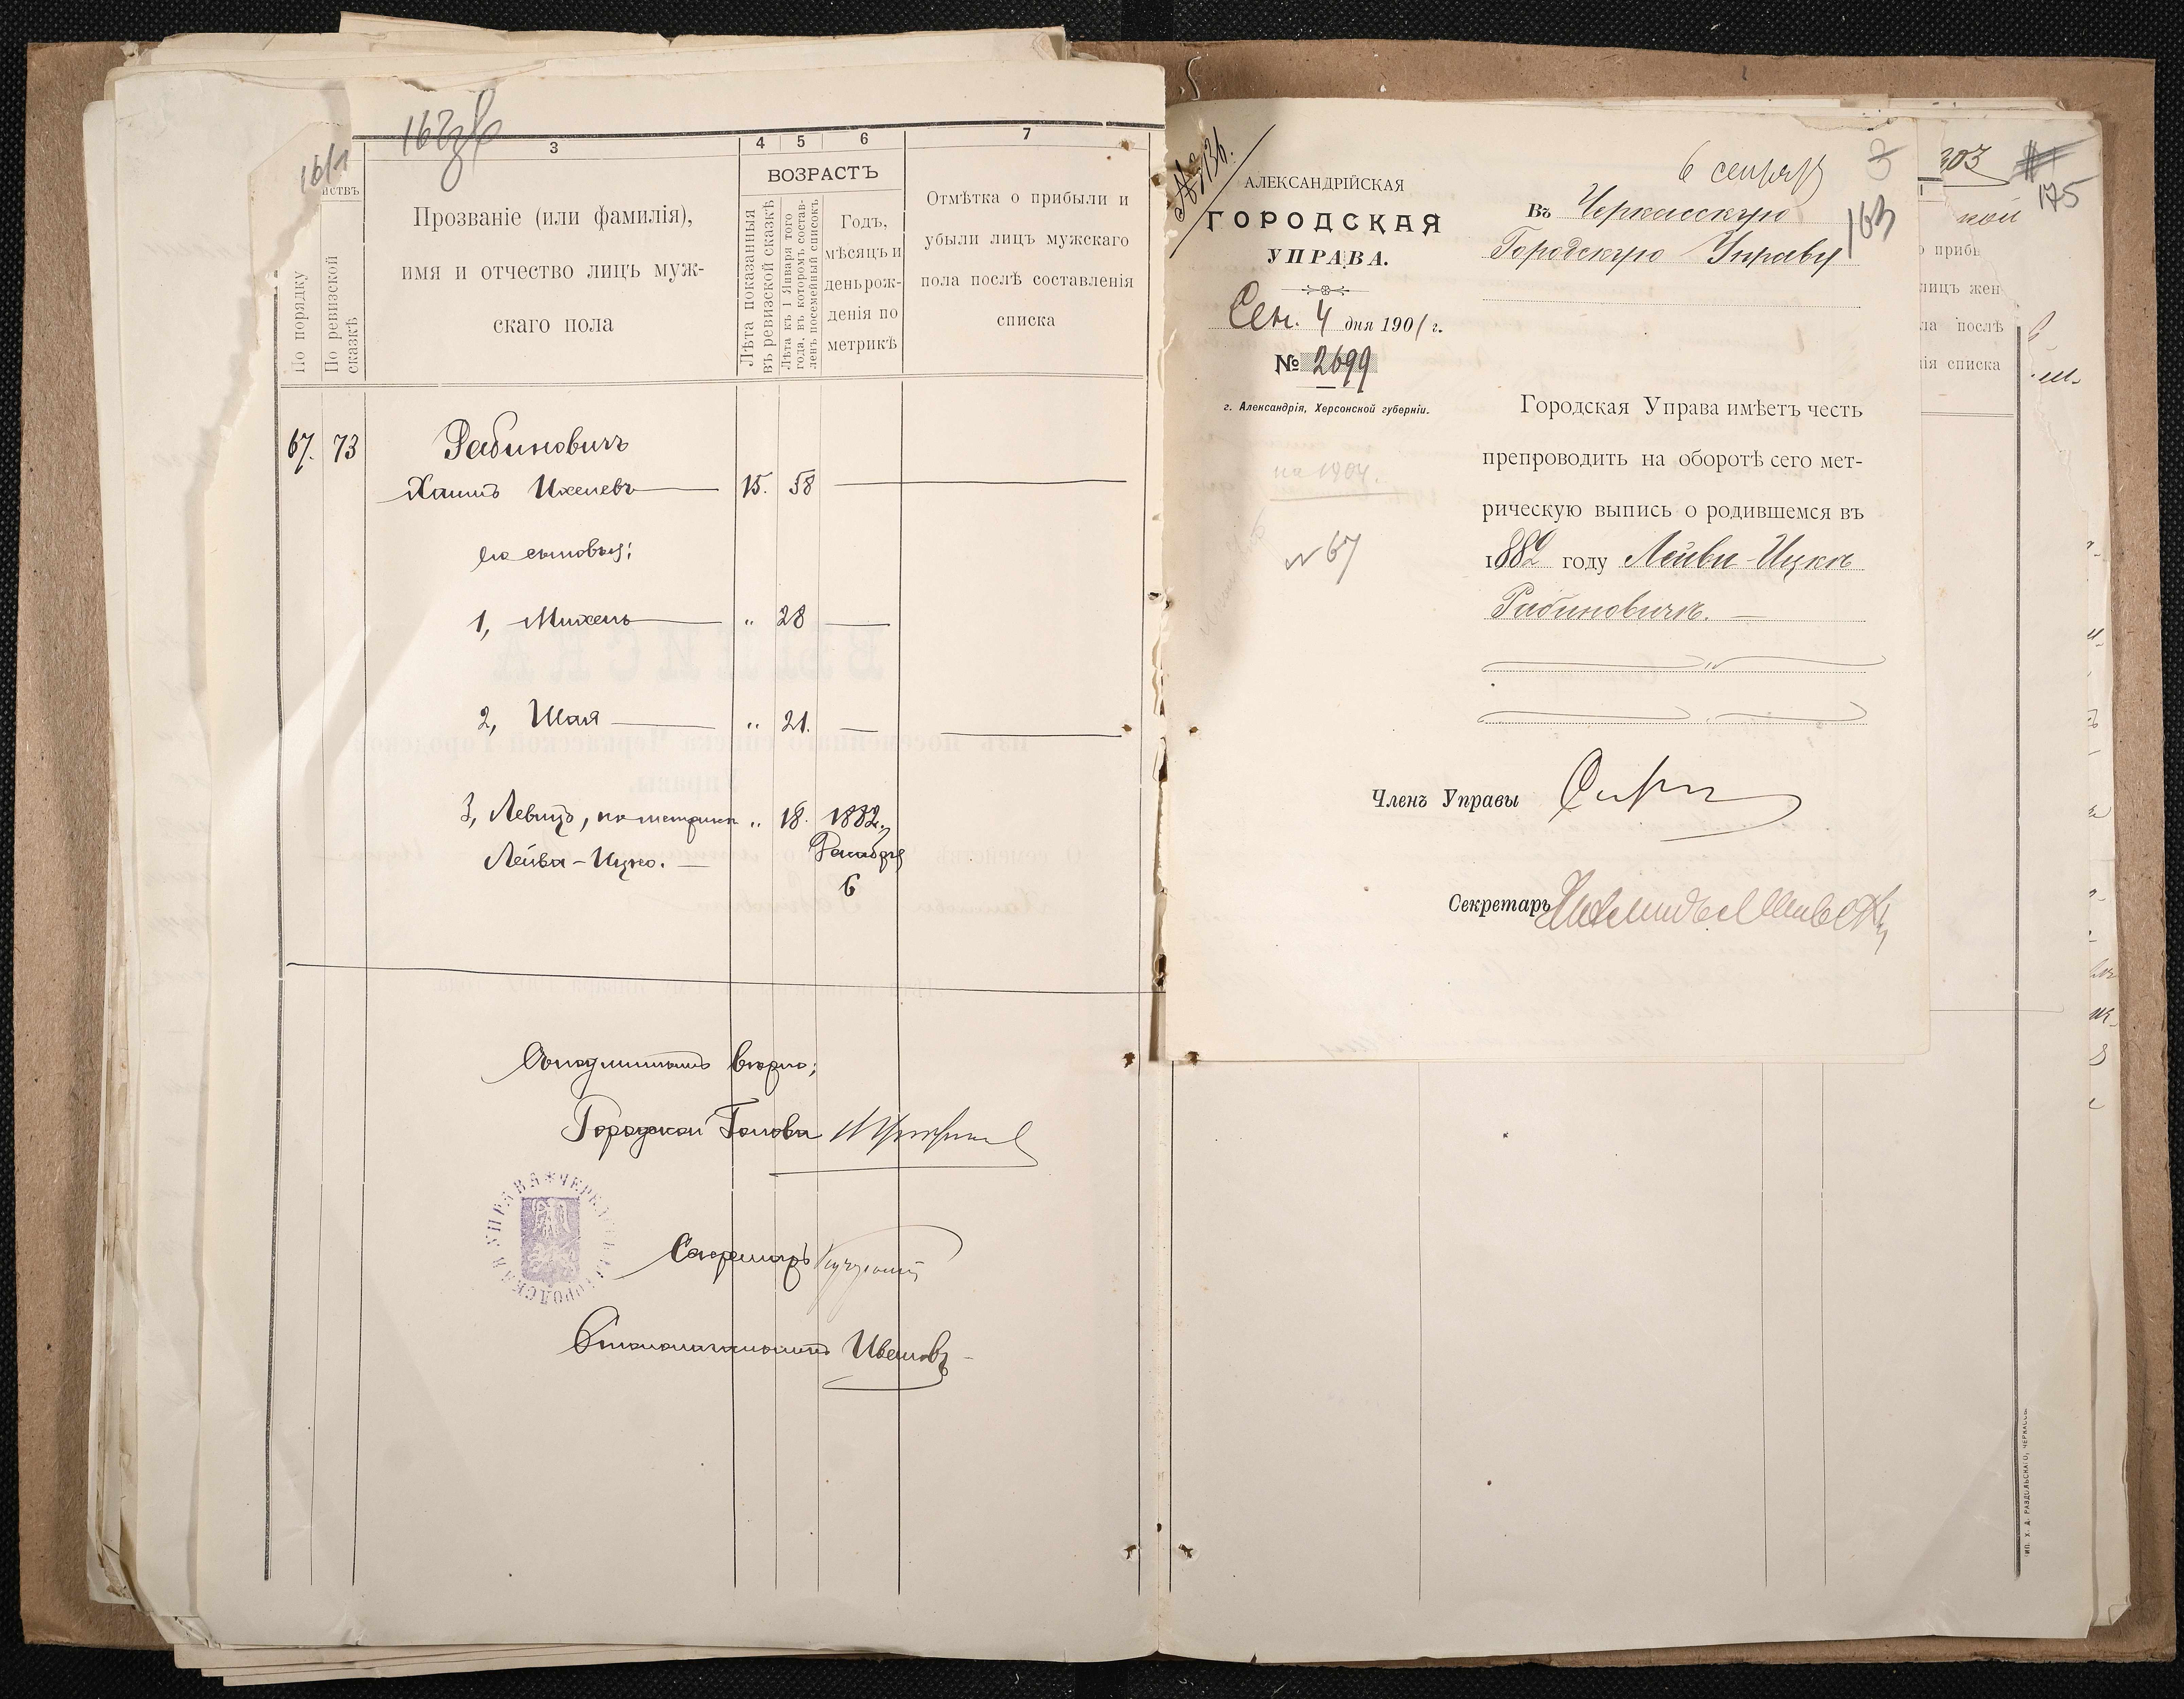 161
162
3
4
5
6
7
По порядку
По ревизской сказкѣ
Прозваніе (или фамилія),
имя и отчество лицъ муж-
скаго пола
ВОЗРАСТЪ
Лѣта показанныя
въ ревизской сказкѣ
Лѣта къ 1 Января того
года, въ которомъ состав-
ленъ посемейный списокъ
Годъ,
мѣсяцъ и
день рож-
денія по
метрикѣ
Отмѣтка о прибыли и
убыли лицъ мужскаго
пола послѣ составленія
списка
67. 73 Рабиновичъ
Хаимъ Ихелевъ 15. 58
Его сыновья:
1, Михель " 28
2, Шая " 21.
3, Левицъ, по метрикѣ " 18. 1882 г.
Лейва-Ицко. Декабря
6
Съ подлиннымъ вѣрно:
Городской Голова
Секретарь
Столоначальникъ Ивановъ
АЛЕКСАНДРІЙСКАЯ
ГОРОДСКАЯ
УПРАВА.
Сен. 4 дня 1901 г.
№ 2699
г. Александрія, Херсонской губерніи.
на 1904.
№ 67
6 сентября
163
Въ Черкасскую
Городскую Управу
Городская Управа имѣетъ честь
препроводить на оборотѣ сего мет-
рическую выпись о родившемся въ
1882 году Лейви-Ицкѣ
Рабиновичѣ.
Членъ Управы
Секретарь
303
175
кой
о прибы
лицъ жен
ла послѣ
ія списка
ТИП. Х. Д. РАЗДОЛЬСКАГО, ЧЕРКАССЫ.